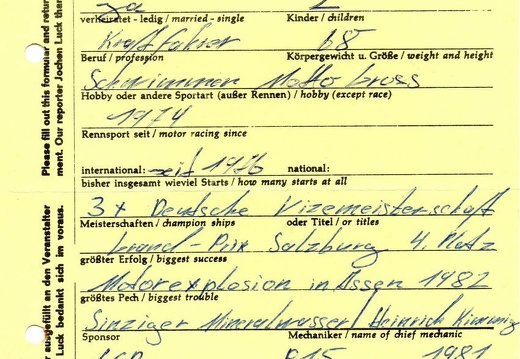 ja
verheiratet - ledig / married - single Kinder / children
Kraftfahrer 68
Beruf / profession Körpergewicht u. Größe / weight and height
Schwimmen Motto Cross
Hobby oder andere Sportart (außer Rennen) / hobby (except race)
1974
Rennsport seit / motor racing since
international: seit 1976 national:
bisher insgesamt wieviel Starts / how many starts at all
3x Deutsche Vizemeisterschaft
Meisterschaften / champion ships oder Titel / or titles
Grand-Prix Salzburg 4. Platz
größter Erfolg / biggest success
Motorexplosion in Assen 1982
größtes Pech / biggest trouble
Sinziger Mineralwasser / Heinrich
Sponsor Mechaniker / name of chief mechanic
1981
Please fill out this formular and retur
ment. Our reporter Jochen Luck ther
ausgefüllt an den Veranstalter
Luck bedankt sich im voraus.